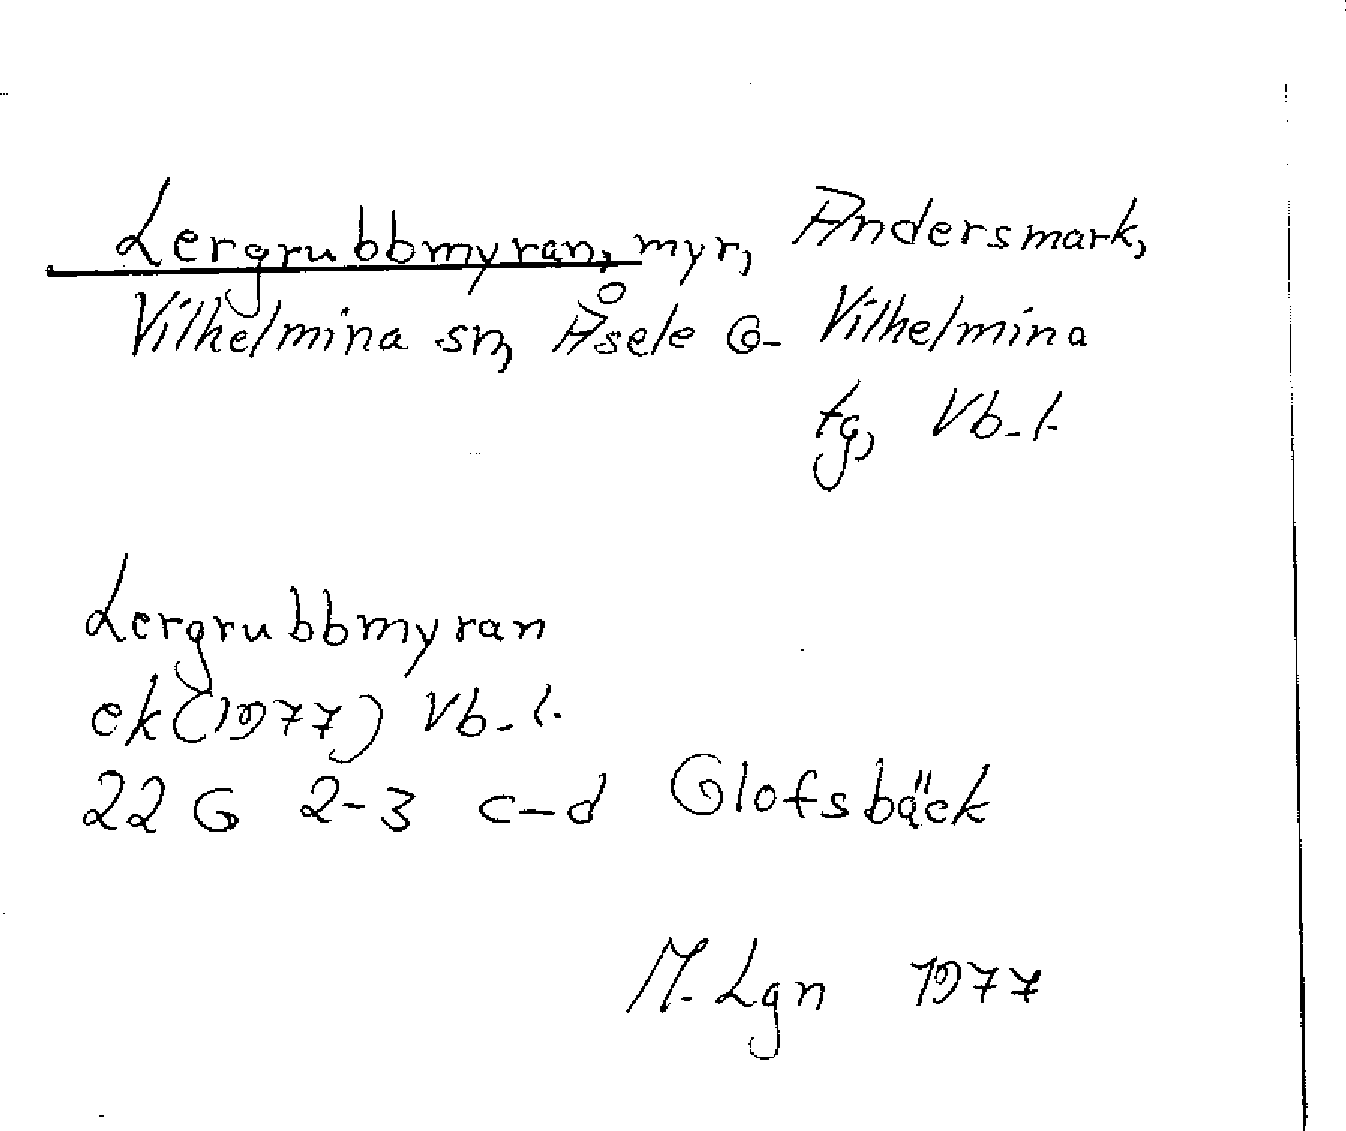 Lergrubbmyran, myr, Andersmark,
Vilhelmina sn, Åsele o. Vilhelmina
tg, Vb. l.
Lergrubbmyran
ek (1977) Vb. l.
22 G 2-3 c-d Glofsbäck
M. Lgn 1977